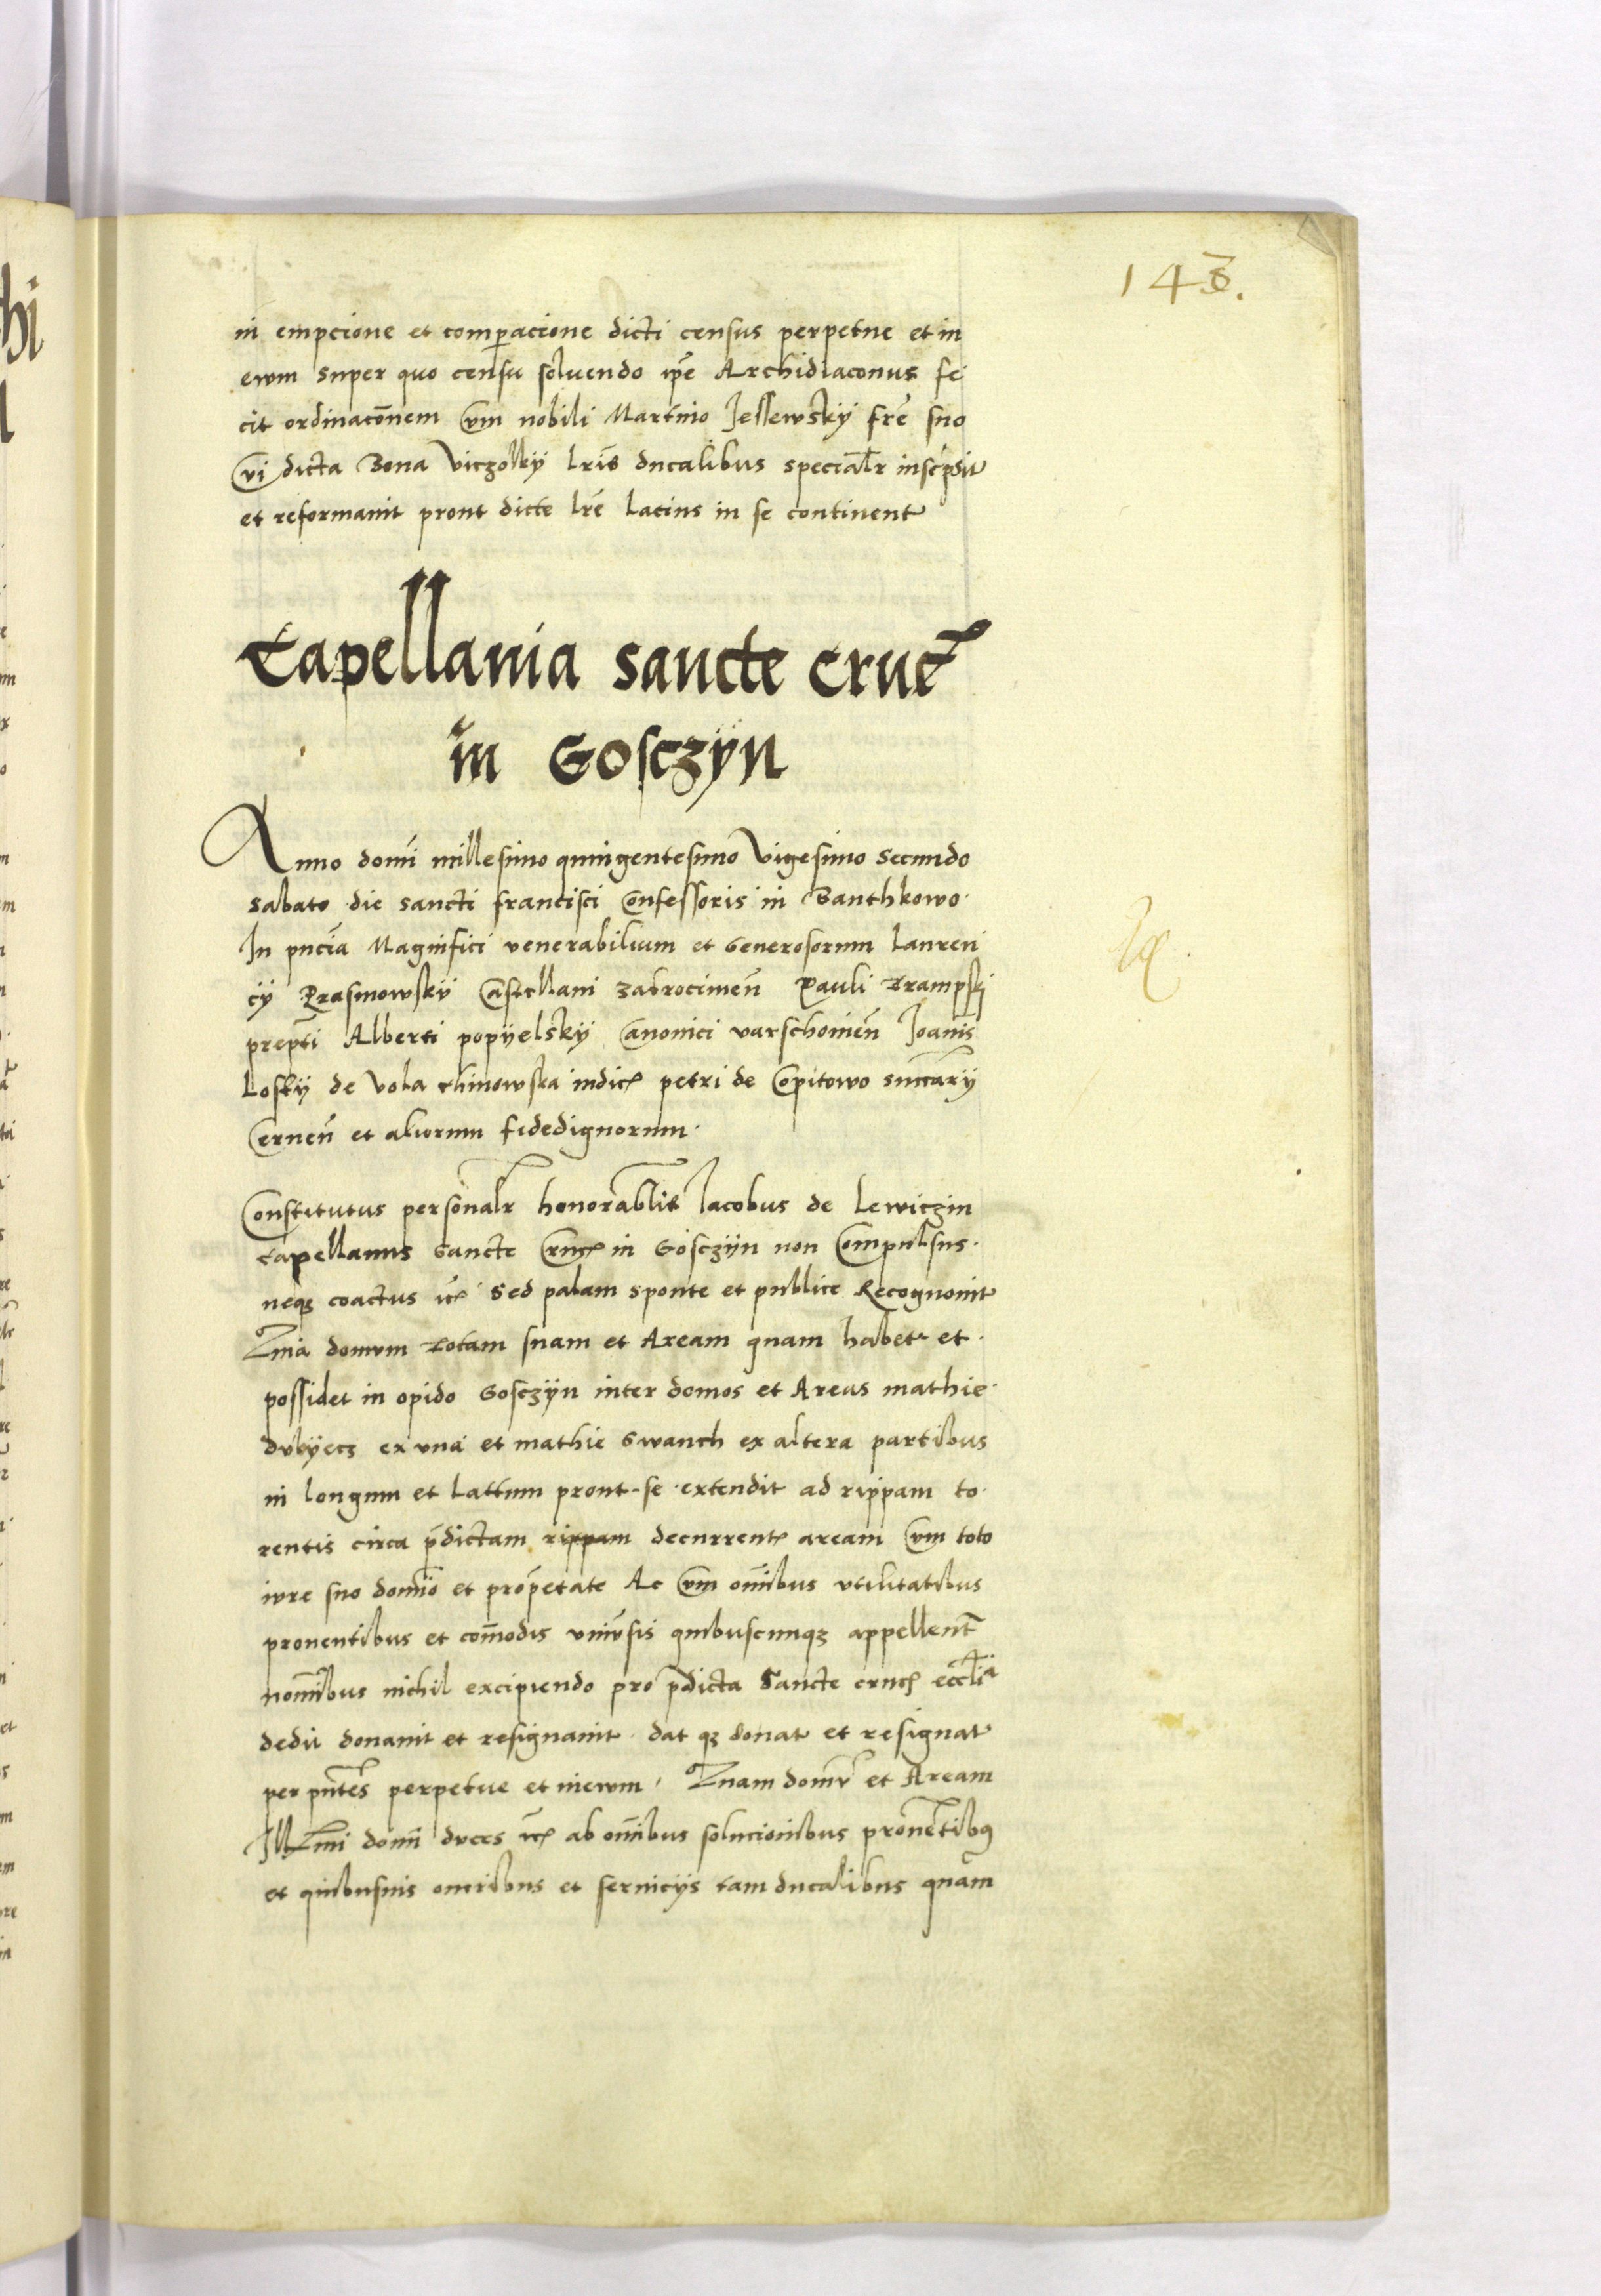 143.
in empcione et comparacione dicti census perpetue et in
ewm super quo censu soluendo ipē Archidiaconus fe
cit ordinacōnem Cum nobili Martino Jessewskÿ frē suo
Cui dicta Bona Viczolkÿ lrīs ducalibus specialr inscripsit
et reformauit prout dicte lrē lacius in se continent
Capellania sancte Crucis
in Gosczÿn
Anno domī millesimo quingentesimo Vigesimo secundo
sabato die sancti francisci Confessoris in Santhkowo
In pncīa Magnifici venerabilium et Generosorum Laureni
cÿ Prasmowskÿ Castellani zakrocimeñ Pauli Krampski
prepti Alberti popÿelskÿ Canonici varschouieñ Joanis
Loskÿ de Vola chinowska iudicis petri de Copitowo succarÿ
Cerneñ et aliorum fidedignorum
Constitutus personalr honorablis Jacobus de Lewiczin
Capellanus Sancte Crucis in Gosczÿn non Compulsus
neqz coactus etc Sed palam sponte et publice Recognouit
Quia domum totam suam et Aream quam habet et
possidet in opido Gosczÿn inter domos et Areas mathie
dubÿecz ex vna et mathie Gwanch ex altera partibus
in longum et lattum prout se extendit ad rippam to
rentis circa pdictam rippam decurrentis aream Cum toto
iure suo domīo et propetate Ac Cum omībus vtilitatibus
prouentibus et comodis vniusis quibuscunqz appellent
nomībus nichil excipiendo pro pdicta Sancte crucis ecclīa
dedit donauit et resignauit dat qz donat et resignat
per pntes perpetue et inewm Quam domū et Aream
Illmi domī duces etc ab omībus solucionibus prouentibus
et quibusuis oneribus et seruicÿs tam ducalibus quam